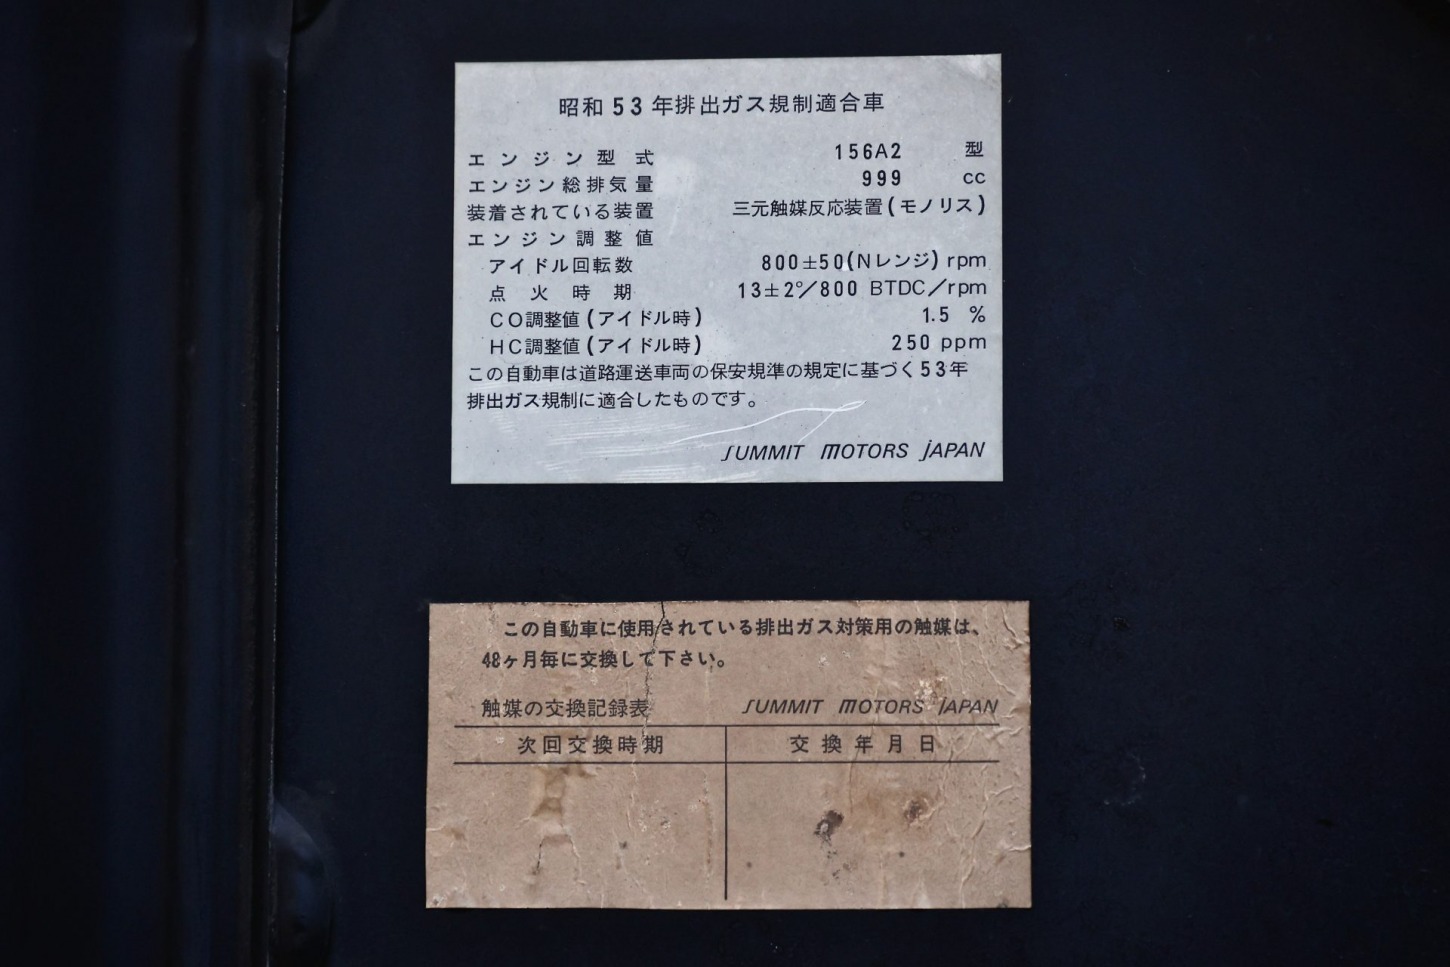 昭和53年排出ガス規制適合車
エンジン型式 156A2 型
エンジン総排気量 999 cc
装着されている装置 三元触媒反応装置(モノリス)
エンジン調整値
アイドル回転数 800±50(Nレンジ) rpm
点火時期 13±2°/800 BTDC/rpm
CO調整値(アイドル時) 1.5 %
HC調整値(アイドル時) 250 ppm
この自動車は道路運送車両の保安規準の規定に基づく53年
排出ガス規制に適合したものです。
SUMMIT MOTORS JAPAN
この自動車に使用されている排出ガス対策用の触媒は、
48ヶ月毎に交換して下さい。
触媒の交換記録表 SUMMIT MOTORS JAPAN
次回交換時期 交換年月日